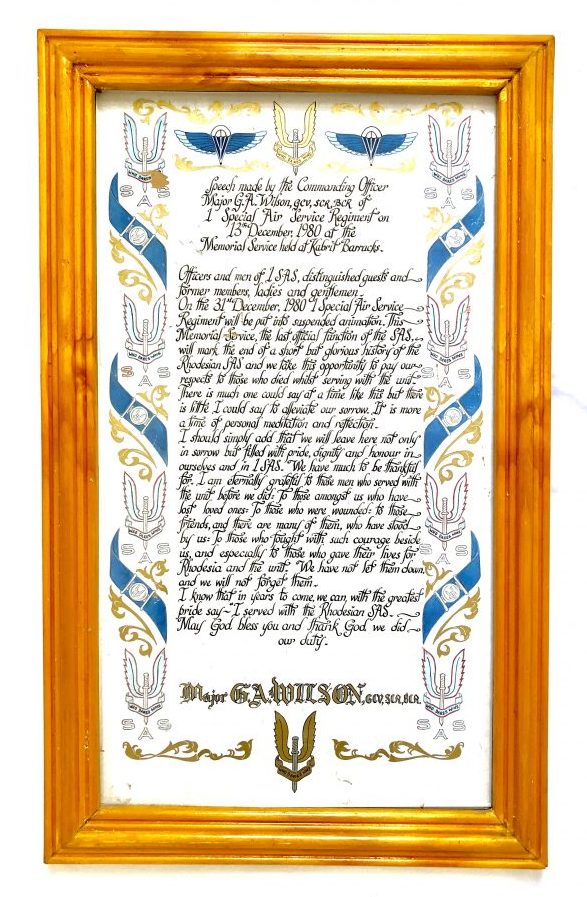 WHO DARES WINS
SAS
Speech made by the Commanding Officer
Major G.A. Wilson, GCV, SCR, BCR of
1 Special Air Service Regiment on
13th December, 1980 at the
Memorial Service held at Kabrit Barracks.
Officers and men of 1 SAS, distinguished guests and
former members, ladies and gentlemen.
On the 31st December, 1980 1 Special Air Service
Regiment will be put into suspended animation. This
Memorial Service, the last official function of the SAS,
will mark the end of a short but glorious history of the
Rhodesian SAS and we take this opportunity to pay our
respects to those who died whilst serving with the unit.
There is much one could say at a time like this but there
is little I could say to alleviate our sorrow. It is more
a time of personal meditation and reflection.
I should simply add that we will leave here not only
in sorrow but filled with pride, dignity and honour in
ourselves and in 1 SAS. We have much to be thankful
for. I am eternally grateful to those men who served with
the unit before we did: To those amongst us who have
lost loved ones: To those who were wounded: to those
friends, and there are many of them, who have stood
by us: To those who fought with such courage beside
us, and especially to those who gave their lives for
Rhodesia and the unit. We have not let them down,
and we will not forget them.
I know that in years to come, we can, with the greatest
pride say - "I served with the Rhodesian SAS.
May God bless you and thank God we did
our duty.
Major G.A. WILSON, GCV, SCR, BCR.
WHO DARES WINS